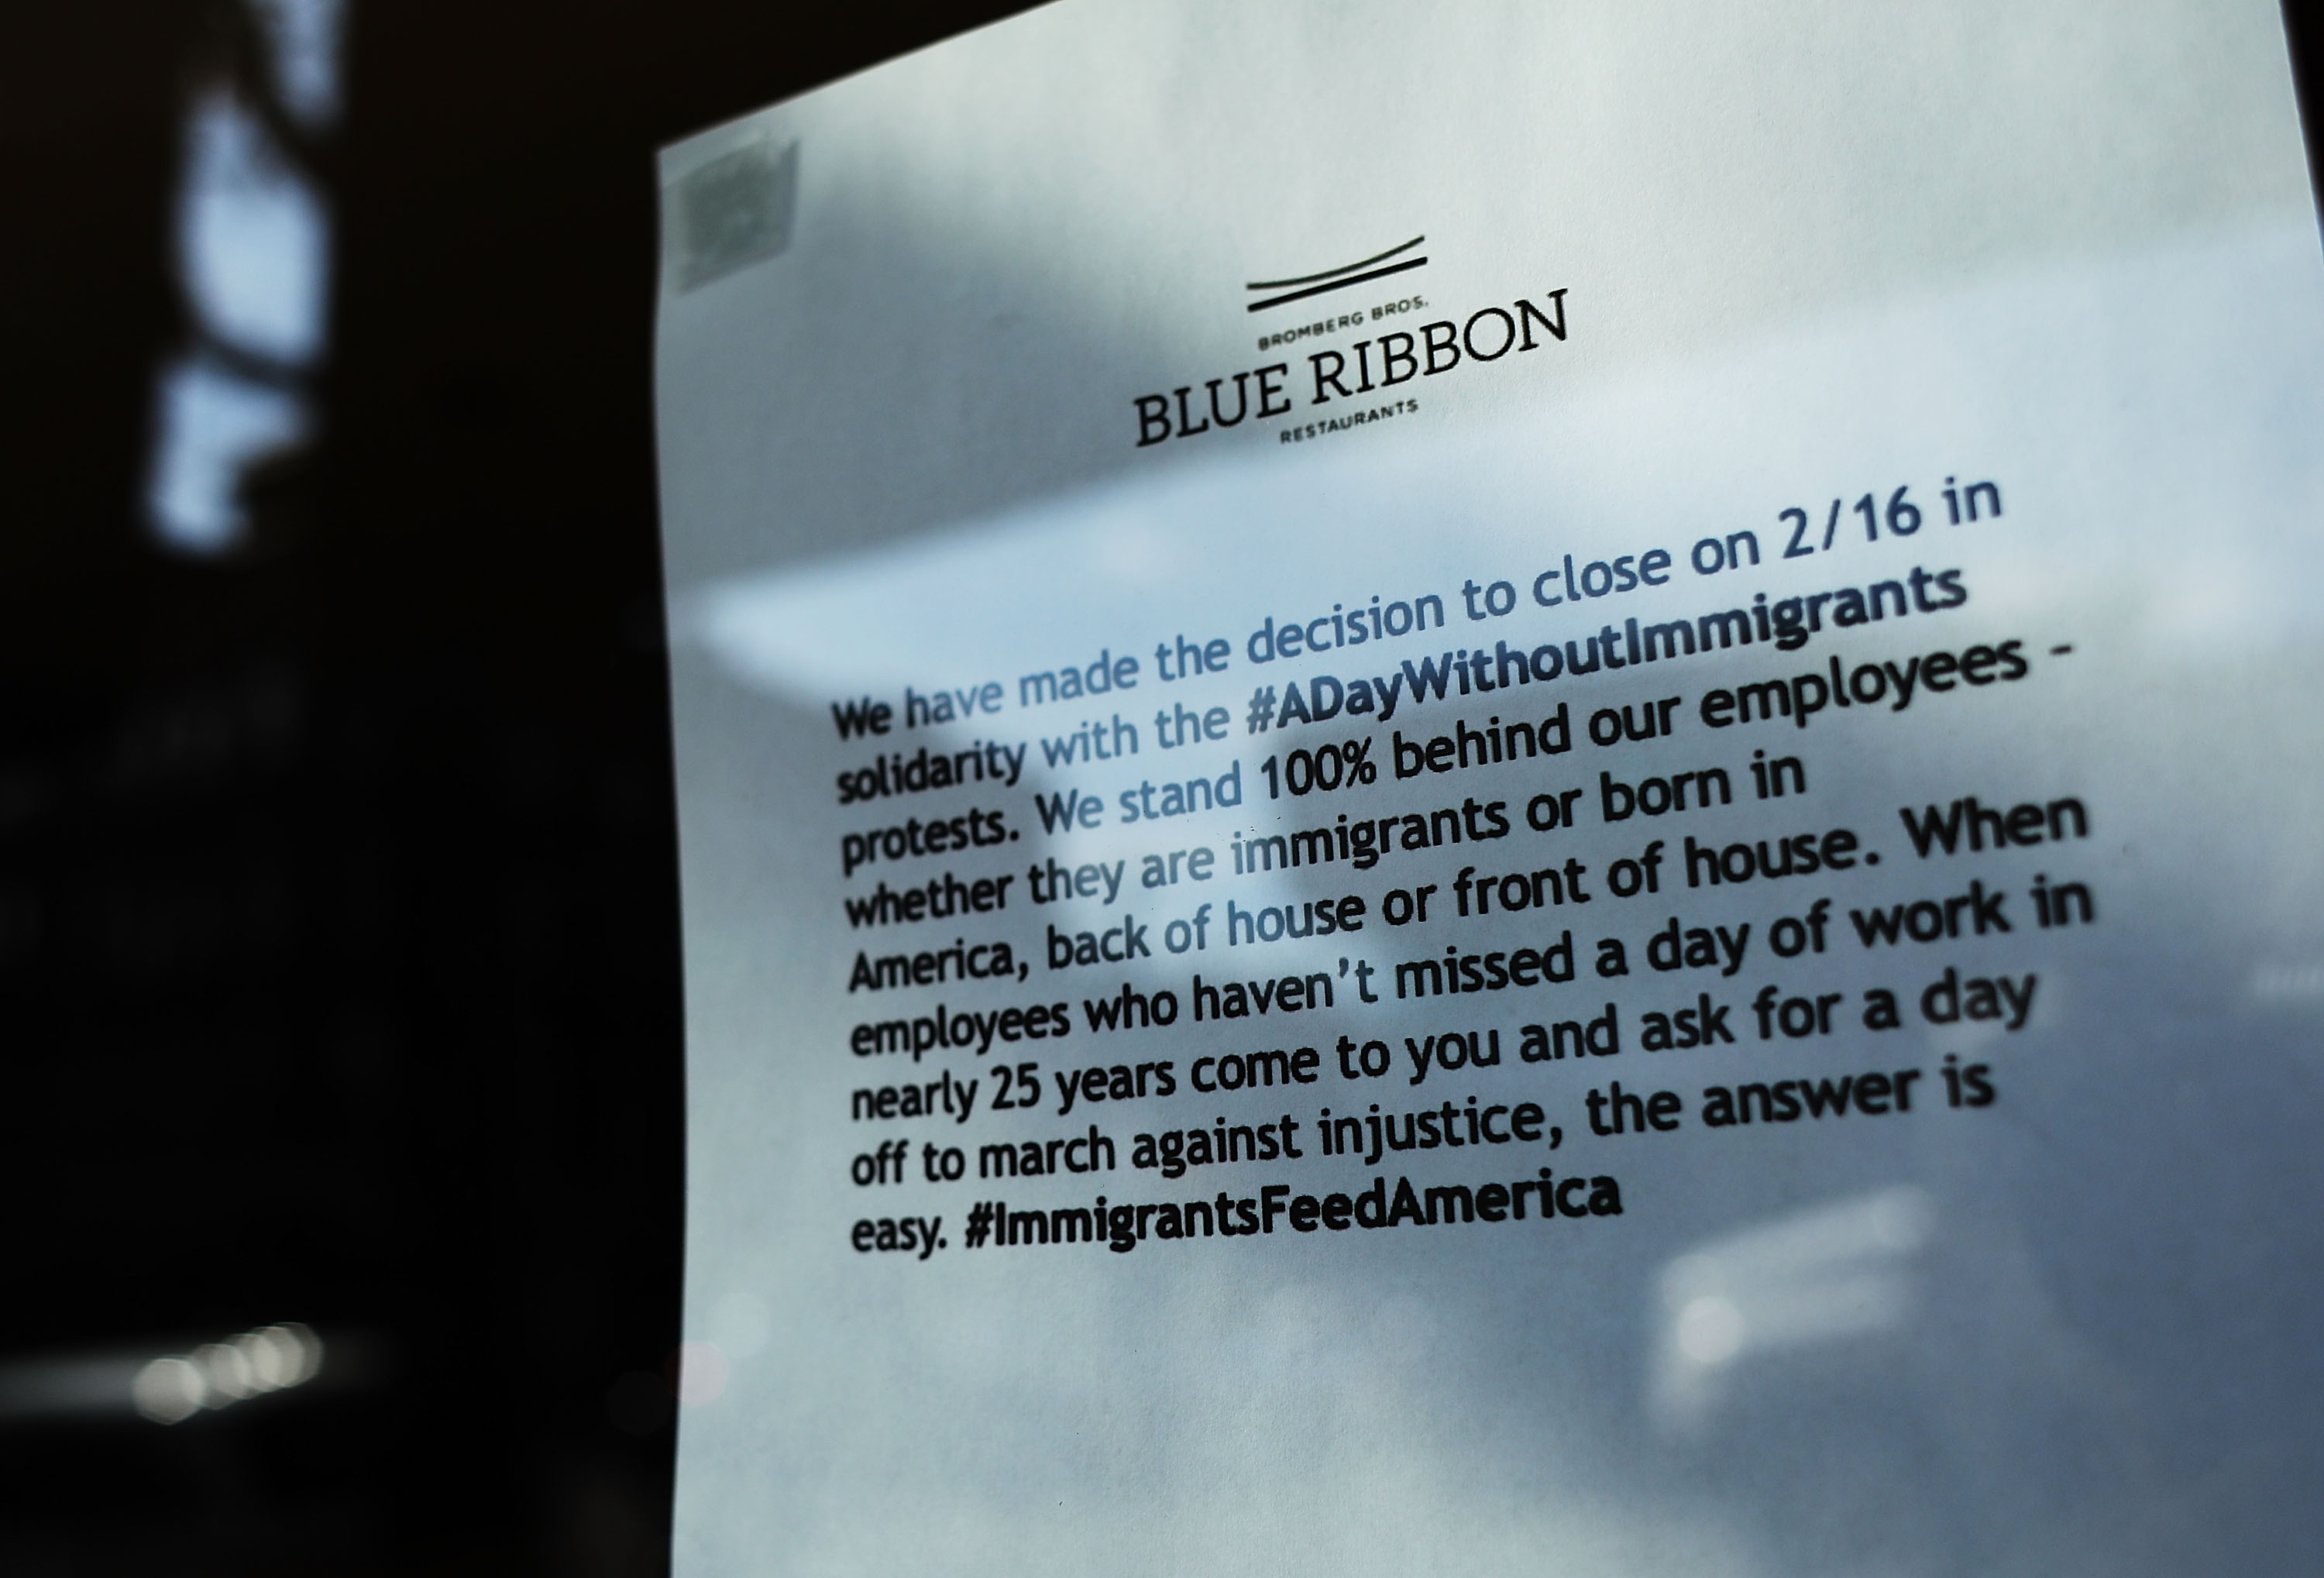 BROMBERG BROS.
BLUE RIBBON
RESTAURANTS
We have made the decision to close on 2/16 in
solidarity with the #ADayWithoutImmigrants
protests. We stand 100% behind our employees -
whether they are immigrants or born in
America, back of house or front of house. When
employees who haven't missed a day of work in
nearly 25 years come to you and ask for a day
off to march against injustice, the answer is
easy. #ImmigrantsFeedAmerica